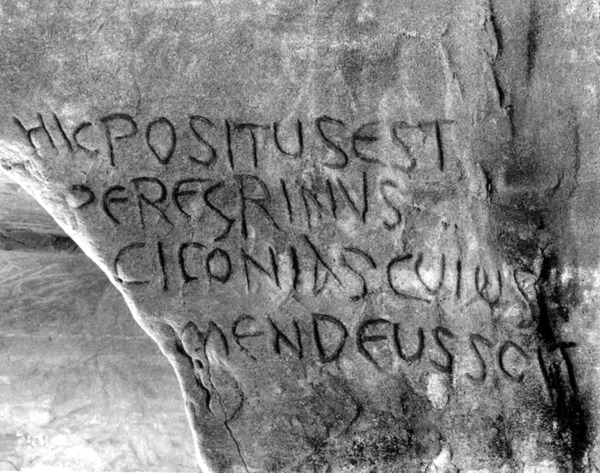 HICPOSITUSEST
PEREGRINVS
CICONIASCUIUS
MENDEUSSCIT